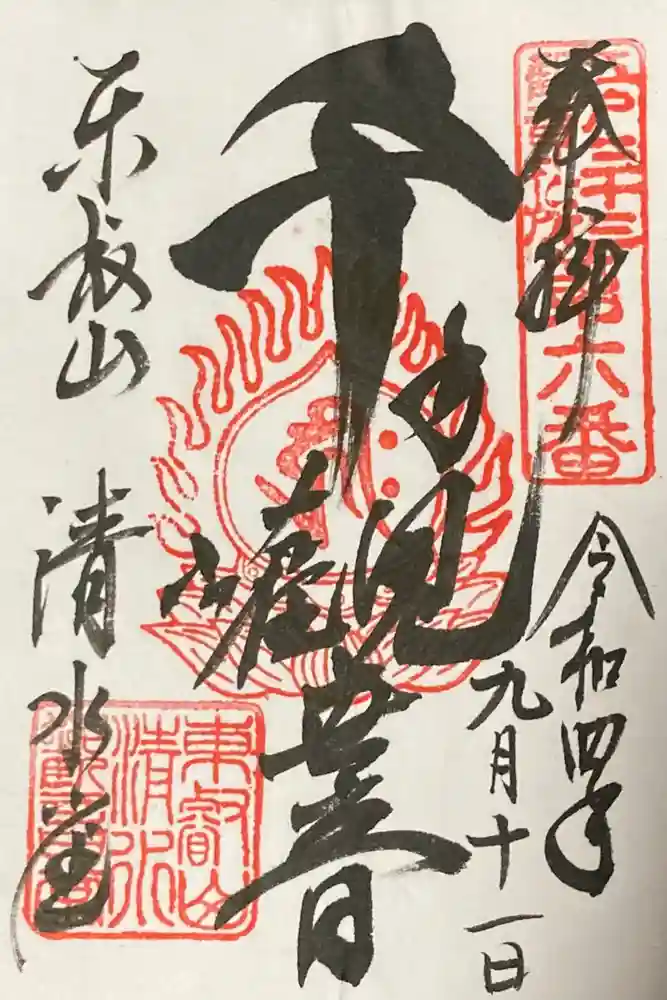 奉拝
第六番
令和四年
九月十一日
千手観世音
東叡山 清水堂
東叡山
清水
観音堂